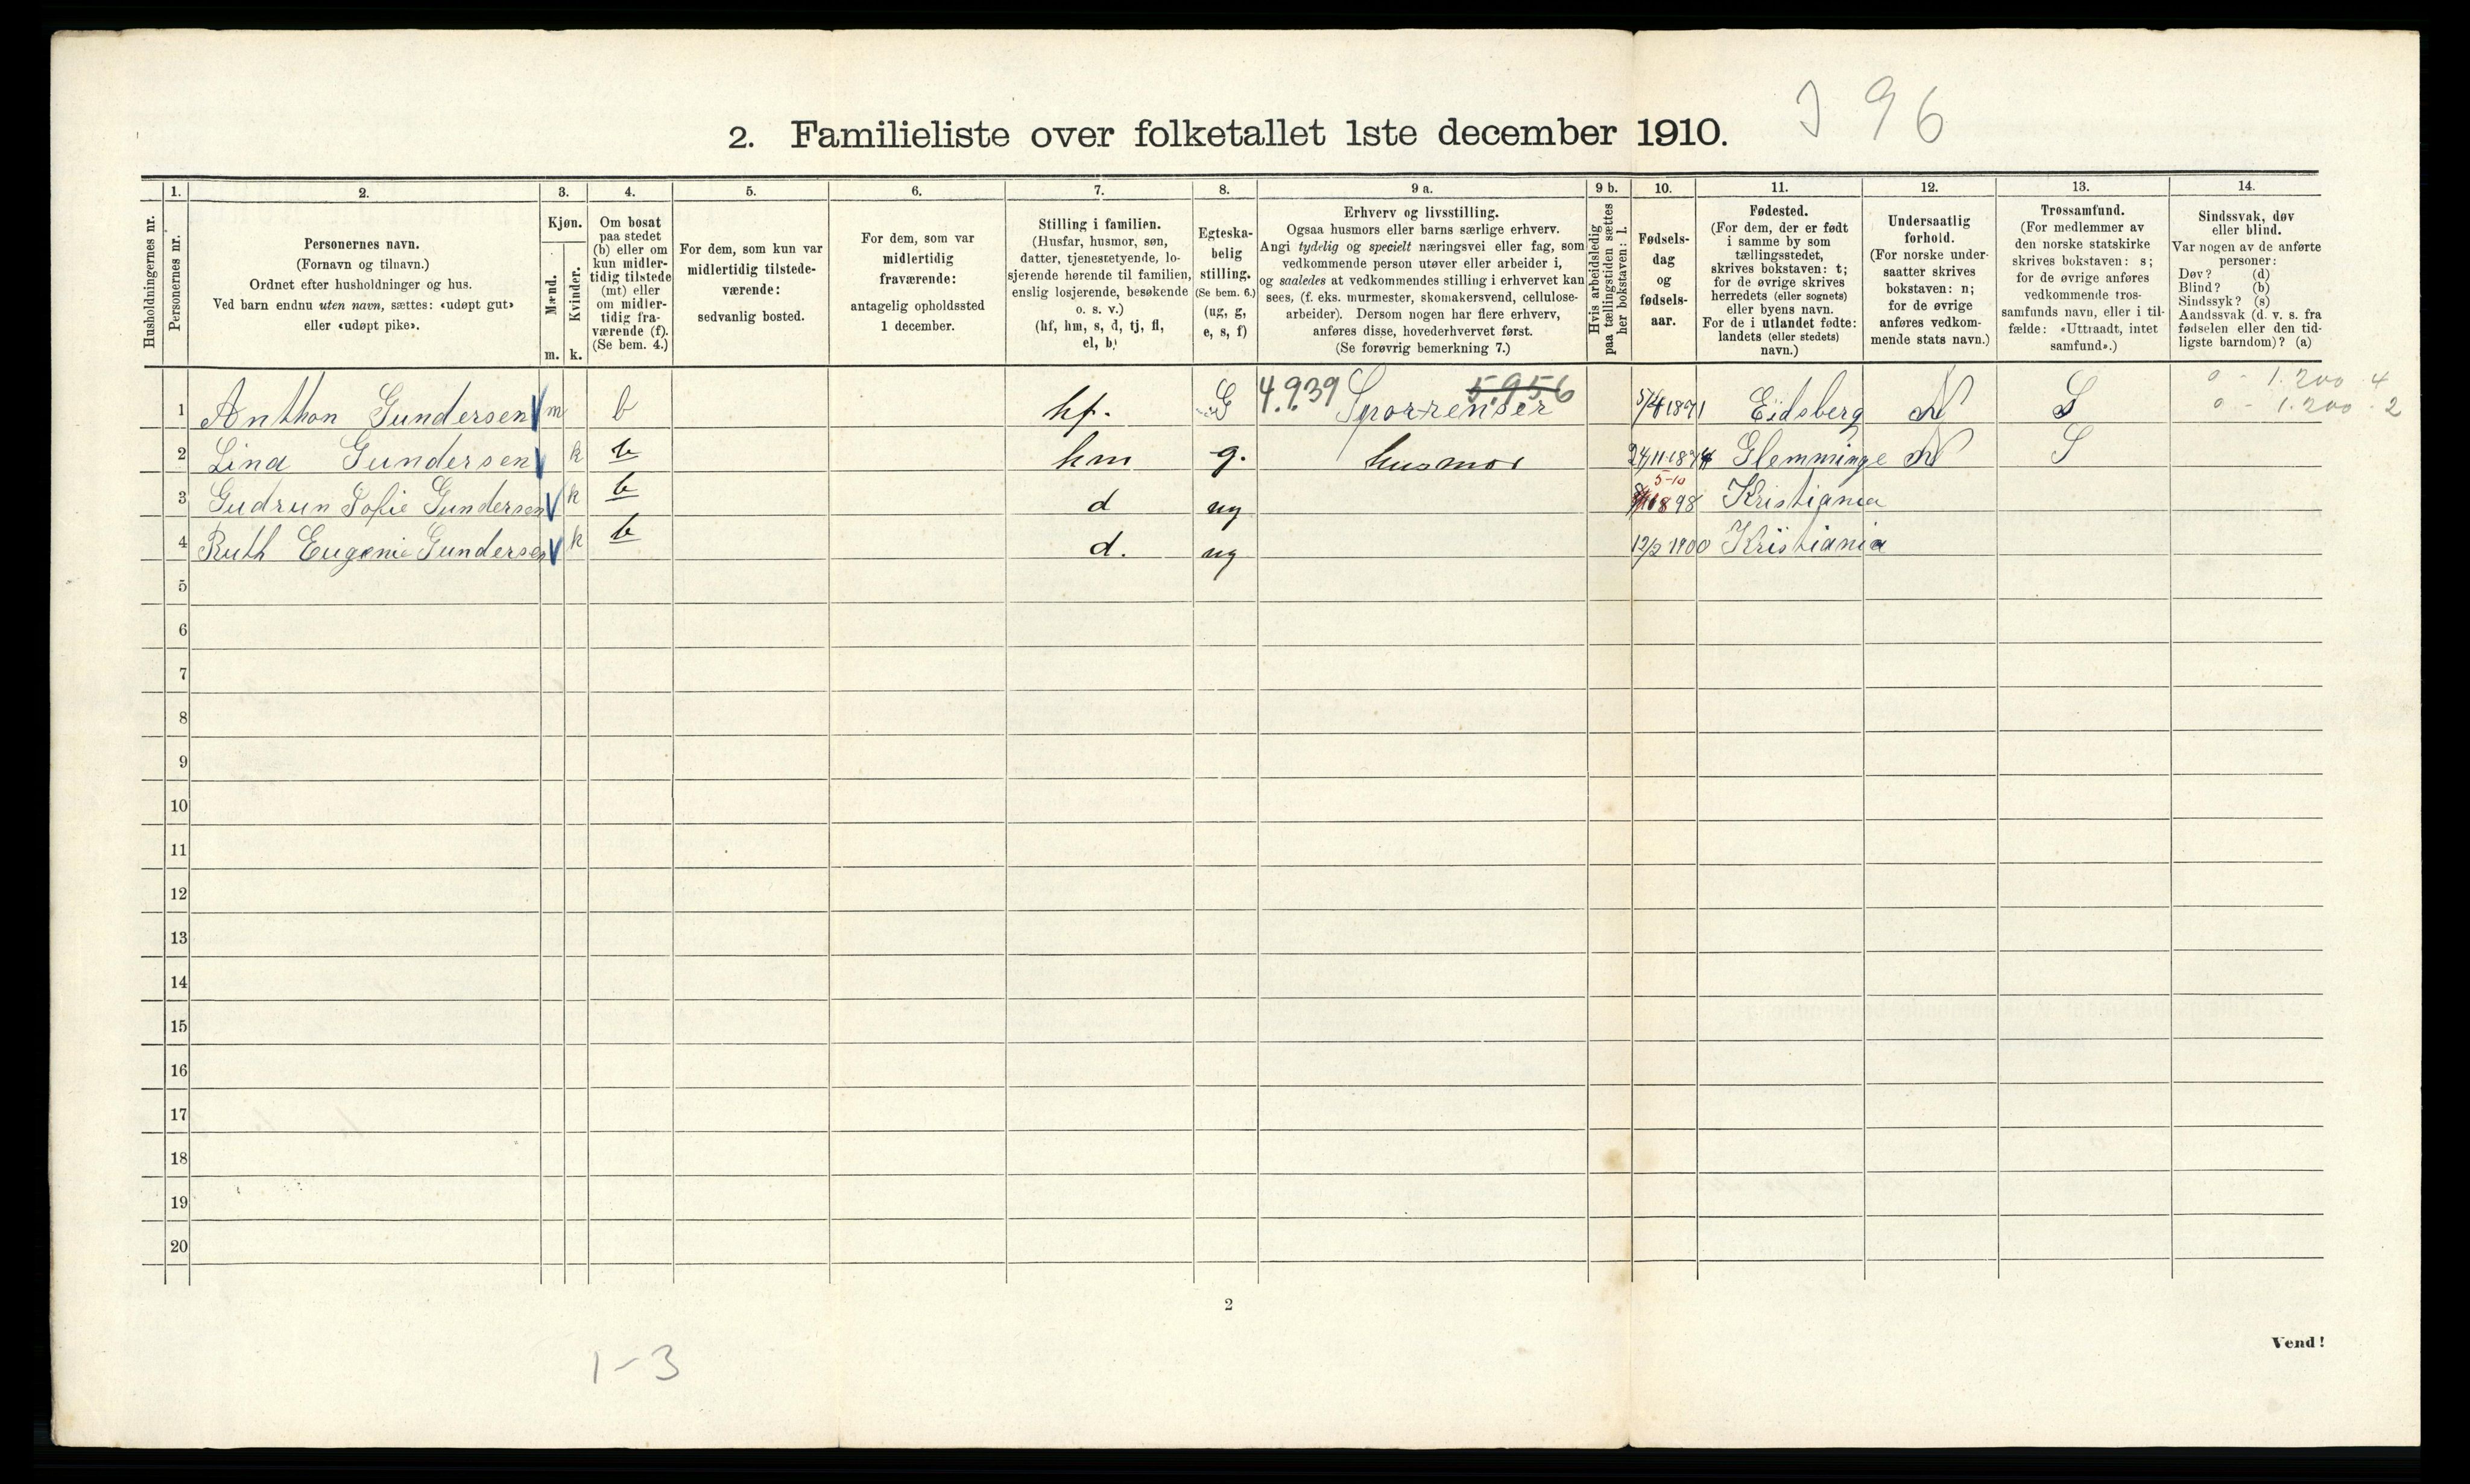 J 96
2. Familieliste over folketallet 1ste december 1910.
1. 2. 3. 4. 5. 6. 7. 8. 9 a. 9 b. 10. 11. 12. 13. 14.
Husholdningernes nr.
Personernes nr.
Personernes navn.
(Fornavn og tilnavn.)
Ordnet efter husholdninger og hus.
Ved barn endnu uten navn, sættes: «udøpt gut»
eller «udøpt pike».
Kjøn.
Mænd.
Kvinder.
m. k.
Om bosat
paa stedet
(b) eller om
kun midler-
tidig tilstede
(mt) eller
om midler-
tidig fra-
værende (f).
(Se bem. 4.)
For dem, som kun var
midlertidig tilstede-
værende:
sedvanlig bosted.
For dem, som var
midlertidig
fraværende:
antagelig opholdssted
1 december.
Stilling i familien.
(Husfar, husmor, søn,
datter, tjenestetyende, lo-
sjerende hørende til familien,
enslig losjerende, besøkende
o. s. v.)
(hf, hm, s, d, tj, fl,
el, b)
Egteska-
belig
stilling.
(Se bem. 6.)
(ug, g,
e, s, f)
Erhverv og livsstilling.
Ogsaa husmors eller barns særlige erhverv.
Angi tydelig og specielt næringsvei eller fag, som
vedkommende person utøver eller arbeider i,
og saaledes at vedkommendes stilling i erhvervet kan
sees, (f. eks. murmester, skomakersvend, cellulose-
arbeider). Dersom nogen har flere erhverv,
anføres disse, hovederhvervet først.
(Se forøvrig bemerkning 7.)
Hvis arbeidsledig
paa tællingstiden sættes
her bokstaven: l.
Fødsels-
dag
og
fødsels-
aar.
Fødested.
(For dem, der er født
i samme by som
tællingsstedet,
skrives bokstaven: t;
for de øvrige skrives
herredets (eller sognets)
eller byens navn.
For de i utlandet fødte:
landets (eller stedets)
navn.)
Undersaatlig
forhold.
(For norske under-
saatter skrives
bokstaven: n;
for de øvrige
anføres vedkom-
mende stats navn.)
Trossamfund.
(For medlemmer av
den norske statskirke
skrives bokstaven: s;
for de øvrige anføres
vedkommende tros-
samfunds navn, eller i til-
fælde: «Uttraadt, intet
samfund».)
Sindssvak, døv
eller blind.
Var nogen av de anførte
personer:
Døv? (d)
Blind? (b)
Sindssyk? (s)
Aandssvak (d. v. s. fra
fødselen eller den tid-
ligste barndom)? (a)
0 - 1.200 . 4
1 Anthon Gundersen m b hf. G 4.939 Sporrenser 5.956 5/4 1871 Eidsberg N S 0 - 1.200 . 2
2 Lina Gundersen k b hm g. husmor 24/11 1874 Glemminge N S
5-10
3 Gudrun Sofie Gundersen k b d ug 1898 Kristiania
4 Ruth Eugenie Gundersen k b d. ug 12/2 1900 Kristiania
5
6
7
8
9
10
11
12
13
14
15
16
17
18
19
20
2
Vend!
1-3